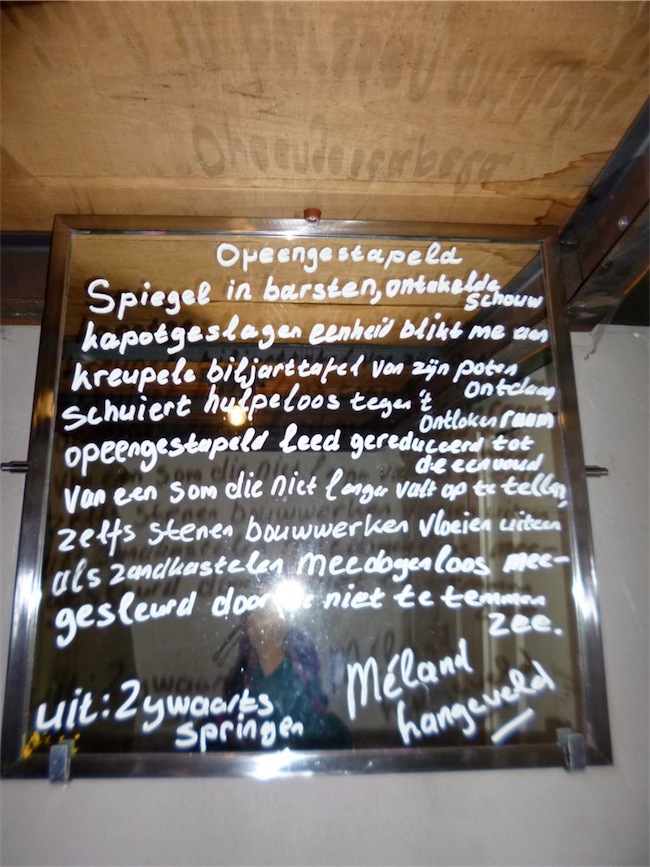 Opeengestapeld
Spiegel in barsten, ontakelde
schouw
kapotgeslagen eenheid blikt me aan
kreupele biljarttafel van zijn poten
ontdaan
schuiert hulpeloos tegen 't
ontloken raam
opeengestapeld leed gereduceerd tot
de eenvoud
van een som die niet langer valt op te tellen,
zelfs stenen bouwwerken vloeien uiteen
als zandkastelen meedogenloos mee-
gesleurd door de niet te temmen
zee.
uit: Zywaarts
springen
Méland
hangeveld